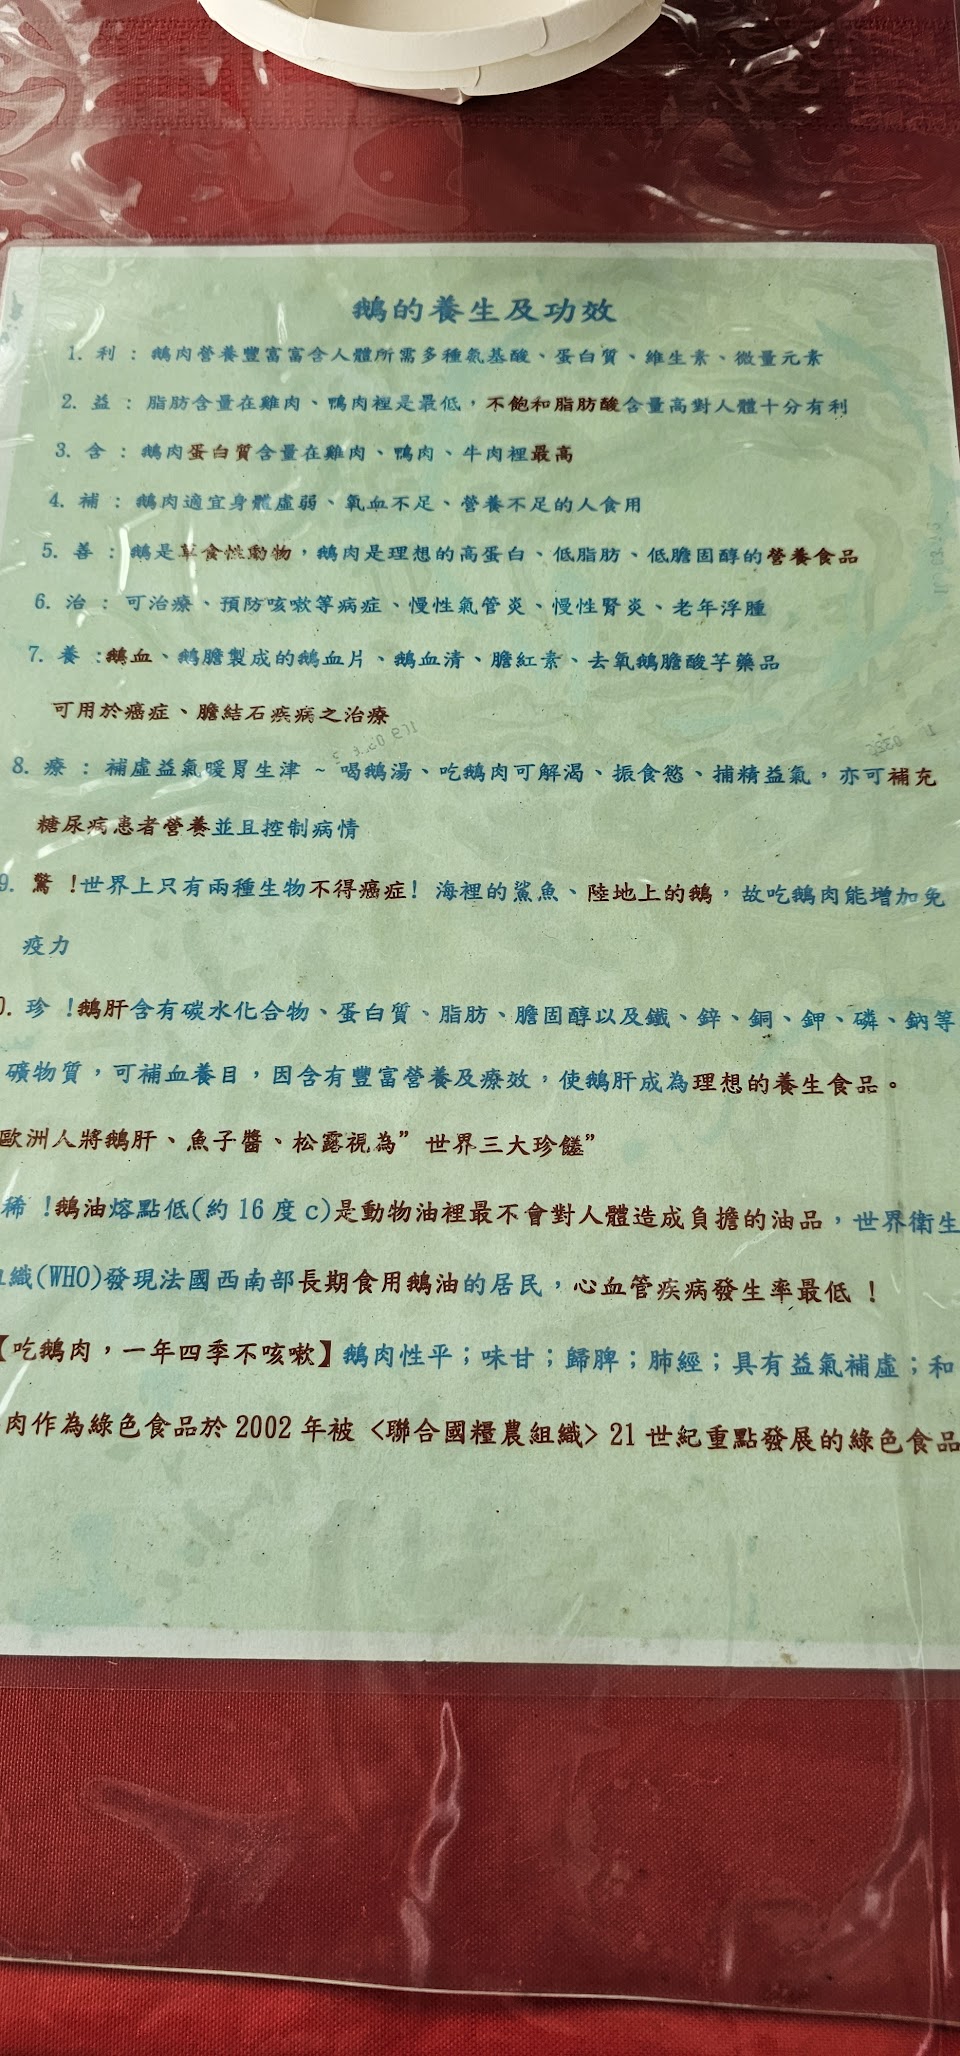 鵝的養生及功效
1. 利 : 鵝肉營養豐富富含人體所需多種氨基酸、蛋白質、維生素、微量元素
2. 益 : 脂肪含量在雞肉、鴨肉裡是最低，不飽和脂肪酸含量高對人體十分有利
3. 含 : 鵝肉蛋白質含量在雞肉、鴨肉、牛肉裡最高
4. 補 : 鵝肉適宜身體虛弱、氧血不足、營養不足的人食用
5. 善 : 鵝是草食性動物，鵝肉是理想的高蛋白、低脂肪、低膽固醇的營養食品
6. 治 : 可治療、預防咳嗽等病症、慢性氣管炎、慢性腎炎、老年浮腫
7. 養 :鵝血、鵝膽製成的鵝血片、鵝血清、膽紅素、去氧鵝膽酸芋藥品
可用於癌症、膽結石疾病之治療
8. 療 : 補虛益氣暖胃生津 ~ 喝鵝湯、吃鵝肉可解渴、振食慾、捕精益氣，亦可補充
糖尿病患者營養並且控制病情
9. 驚 !世界上只有兩種生物不得癌症! 海裡的鯊魚、陸地上的鵝，故吃鵝肉能增加免
疫力
0. 珍 !鵝肝含有碳水化合物、蛋白質、脂肪、膽固醇以及鐵、鋅、銅、鉀、磷、鈉等
礦物質，可補血養目，因含有豐富營養及療效，使鵝肝成為理想的養生食品。
歐洲人將鵝肝、魚子醬、松露視為”世界三大珍饈”
稀 !鵝油熔點低(約 16 度 c)是動物油裡最不會對人體造成負擔的油品，世界衛生
織(WHO)發現法國西南部長期食用鵝油的居民，心血管疾病發生率最低 !
【吃鵝肉，一年四季不咳嗽】鵝肉性平；味甘；歸脾；肺經；具有益氣補虛；和
肉作為綠色食品於 2002 年被〈聯合國糧農組織〉21 世紀重點發展的綠色食品